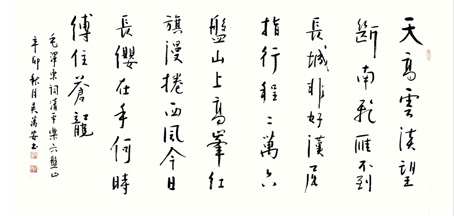 天高雲淡望
斷南飛雁不到
長城非好漢屈
指行程二萬六
盤山上高峯紅
旗漫捲西風今日
長纓在手何時
縛住蒼龍
毛澤東詞清平樂六盤山
辛卯秋月